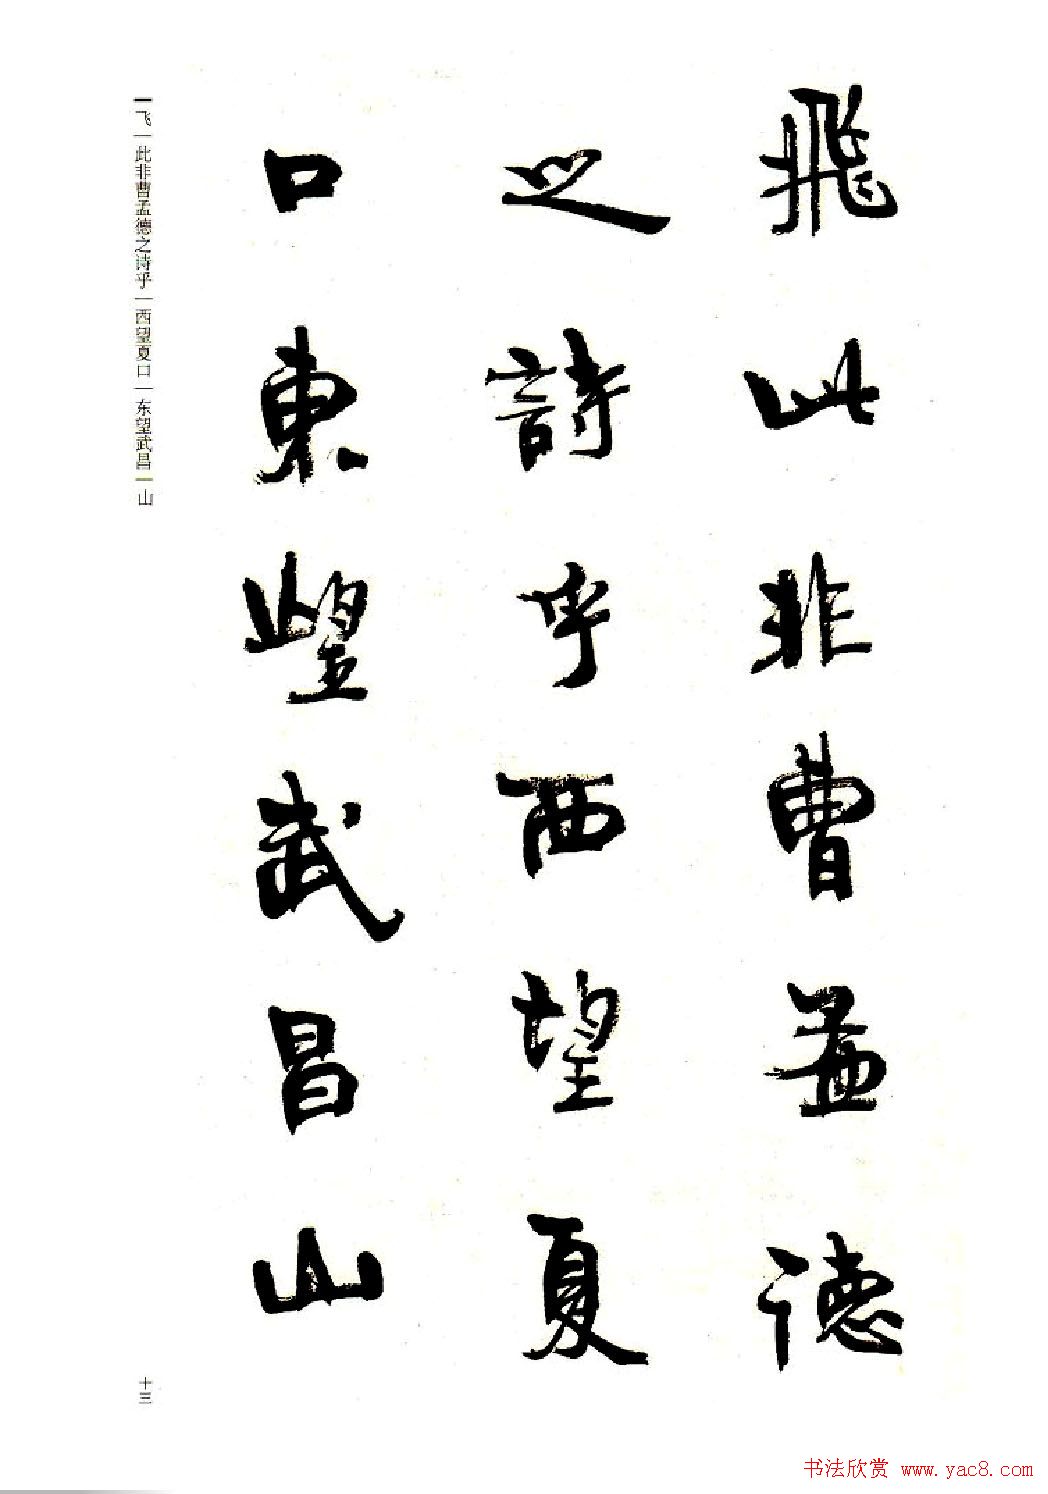 飛此非曹孟德
之詩乎西望夏
口東望武昌山
一飞一此非曹孟德之诗乎一西望夏口一东望武昌一山
十三
书法欣赏 www.yac8.com